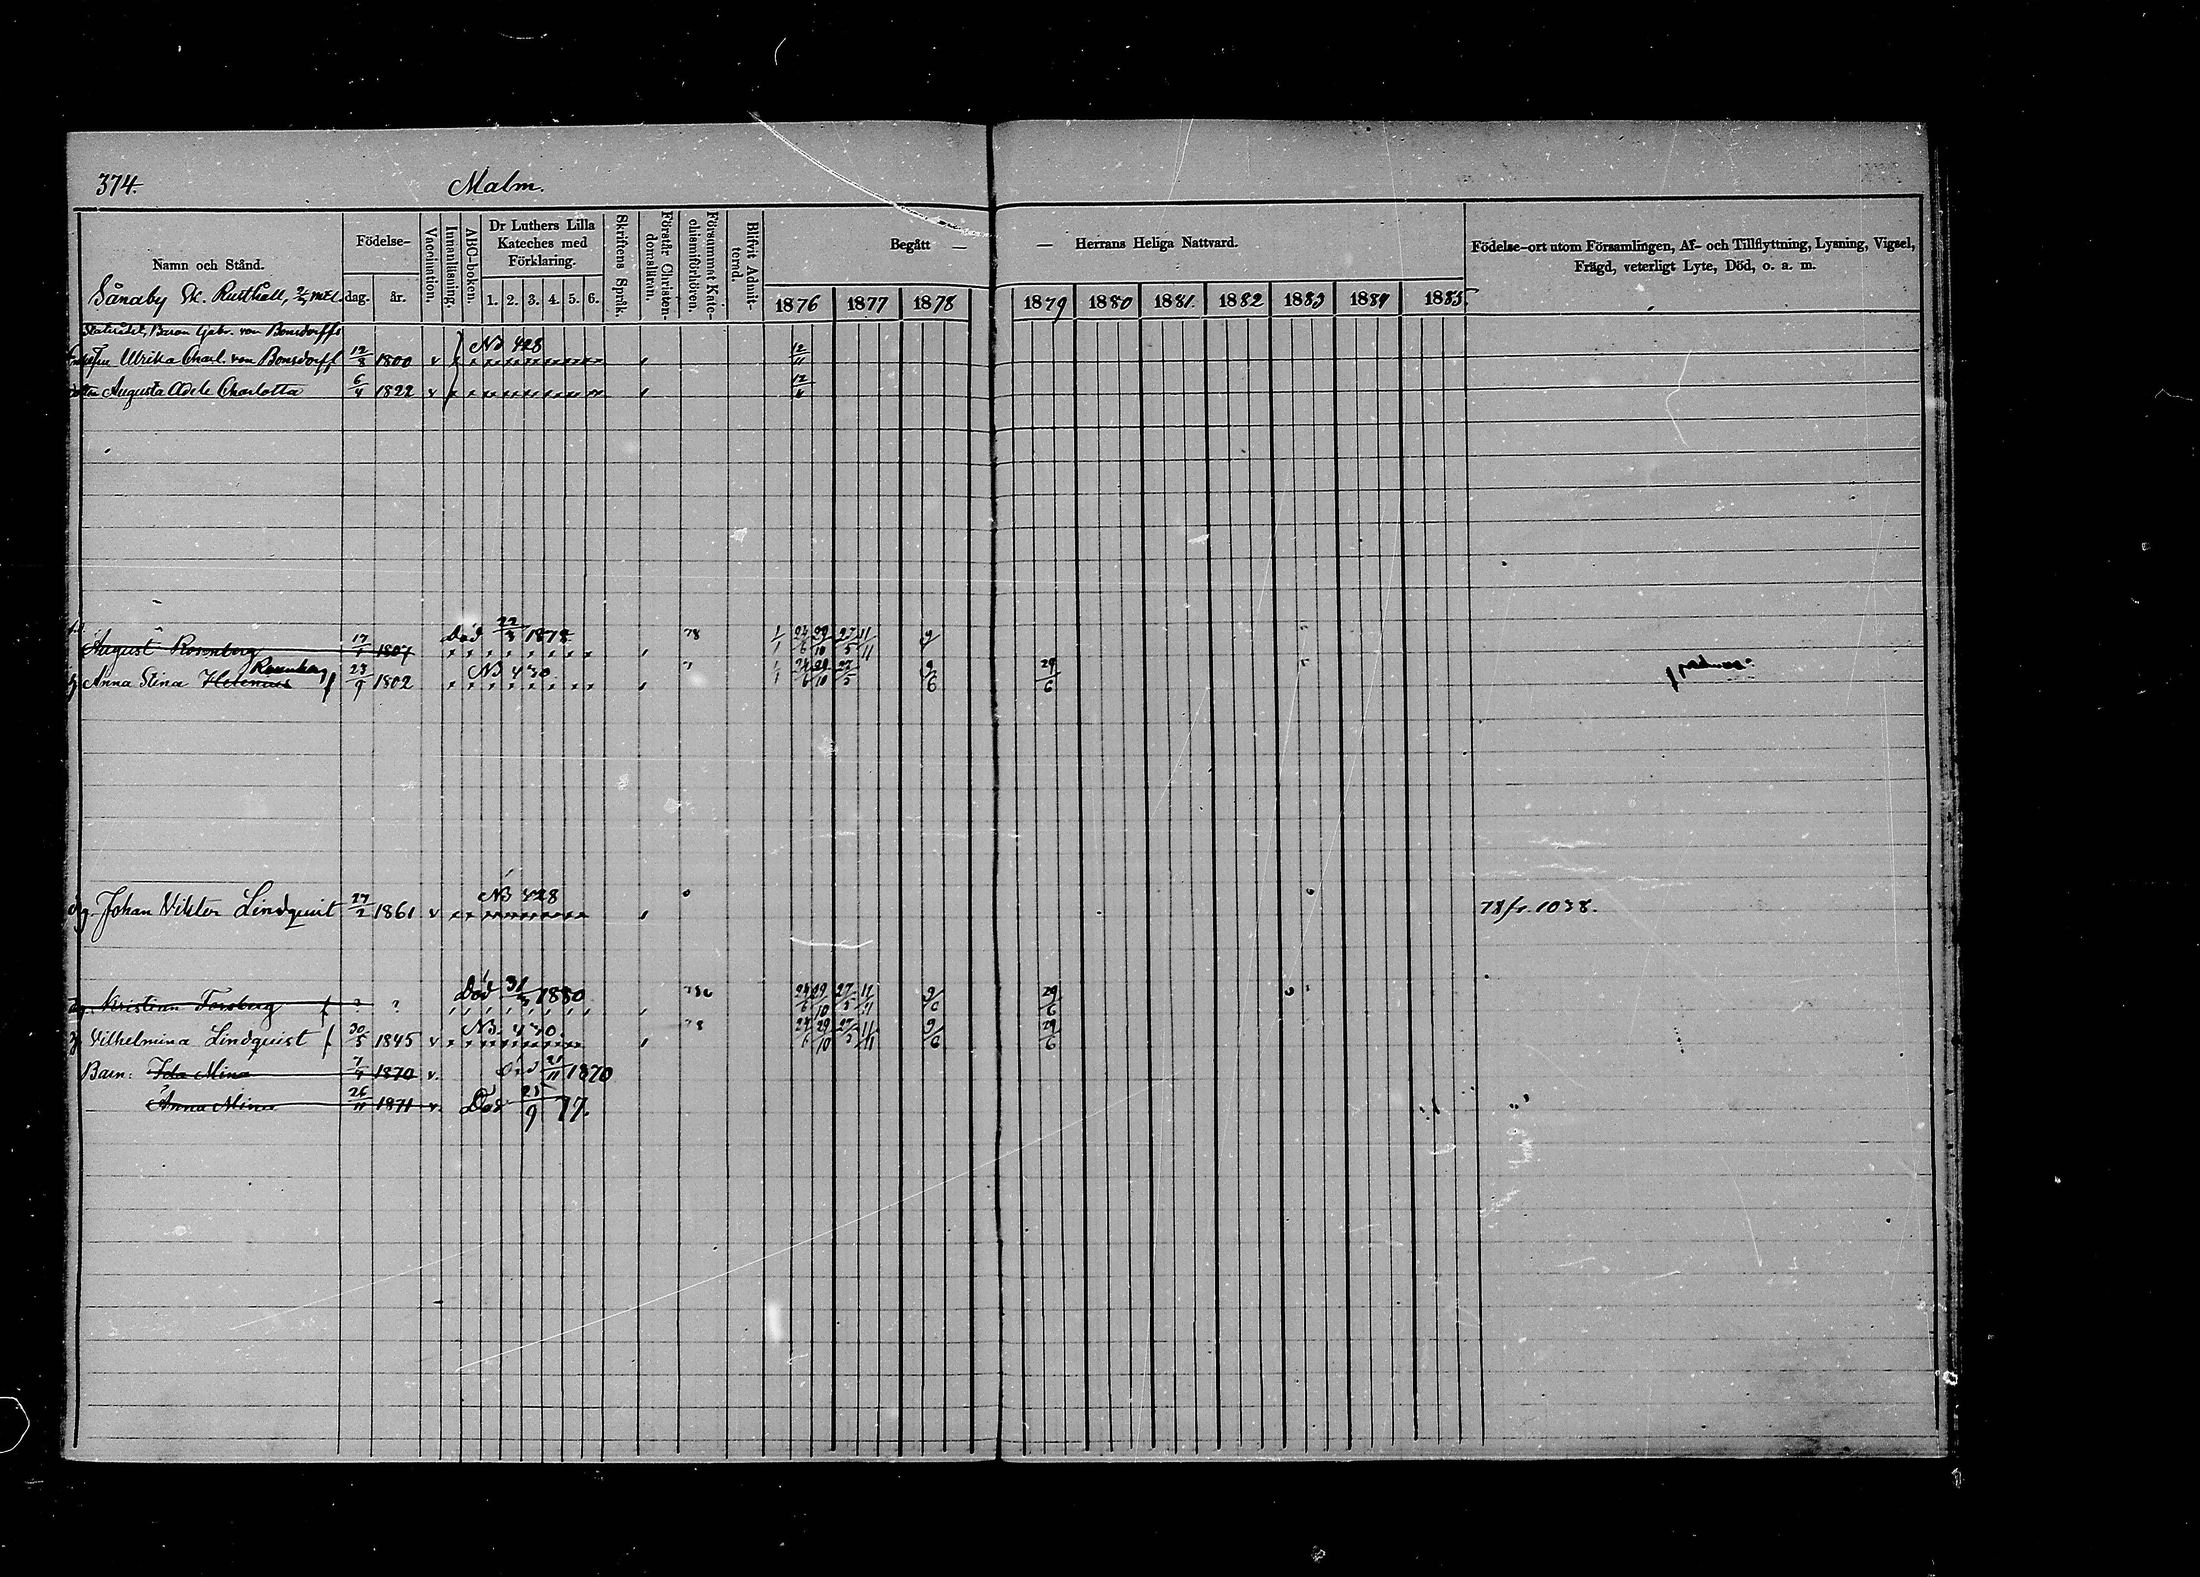 374. Malm.
Namn och Stånd. Födelse- dag. år. Vaccination. Innanläsning. ABC-boken. Dr Luthers Lilla Kateches med Förklaring. 1. 2. 3. 4. 5. 6. Skriftens Språk. Förstår Christendomsläran. Försummat Katechismiförhören. Blifvit Admitterad. Begått —
— Herrans Heliga Nattvard.
Födelse-ort utom Församlingen, Af- och Tillflyttning, Lysning, Vigsel, Frägd, veterligt Lyte, Död, o. a. m.
1876 1877 1878 1879 1880 1881 1882 1883 1884 1885
Sånaby
Statsrådet, Baron Gabr. von Bonsdorffs
Ulrika Charl. von Bonsdorff 12/8 1800 v N3 428 12/11
Augusta Adele Charlotta 6/4 1822 v
August Rosenberg 1807 Död 22/3 1878 78 1/1 24/6 29/10 27/5 11/11
Anna Stina Helenius Rosenberg 23/9 1802 N3 430 1/1 24/6 29/10 27/5 9/6 29/6
Johan Viktor Lindquist 27/2 1861 v N3 428 78 fr. 1038.
Kristina Forsberg ? ? Död 31/3 1880 24/6 29/10 27/5 11/11 9/6 29/6
Vilhelmina Lindquist 30/5 1845 v N3 430 78 24/6 29/10 27/5 11/11 9/6 29/6
Barn: Ida Mina 1870 v. Död 21/11 1870
Anna Mina 26/11 1871 v. Död 23/9 77.